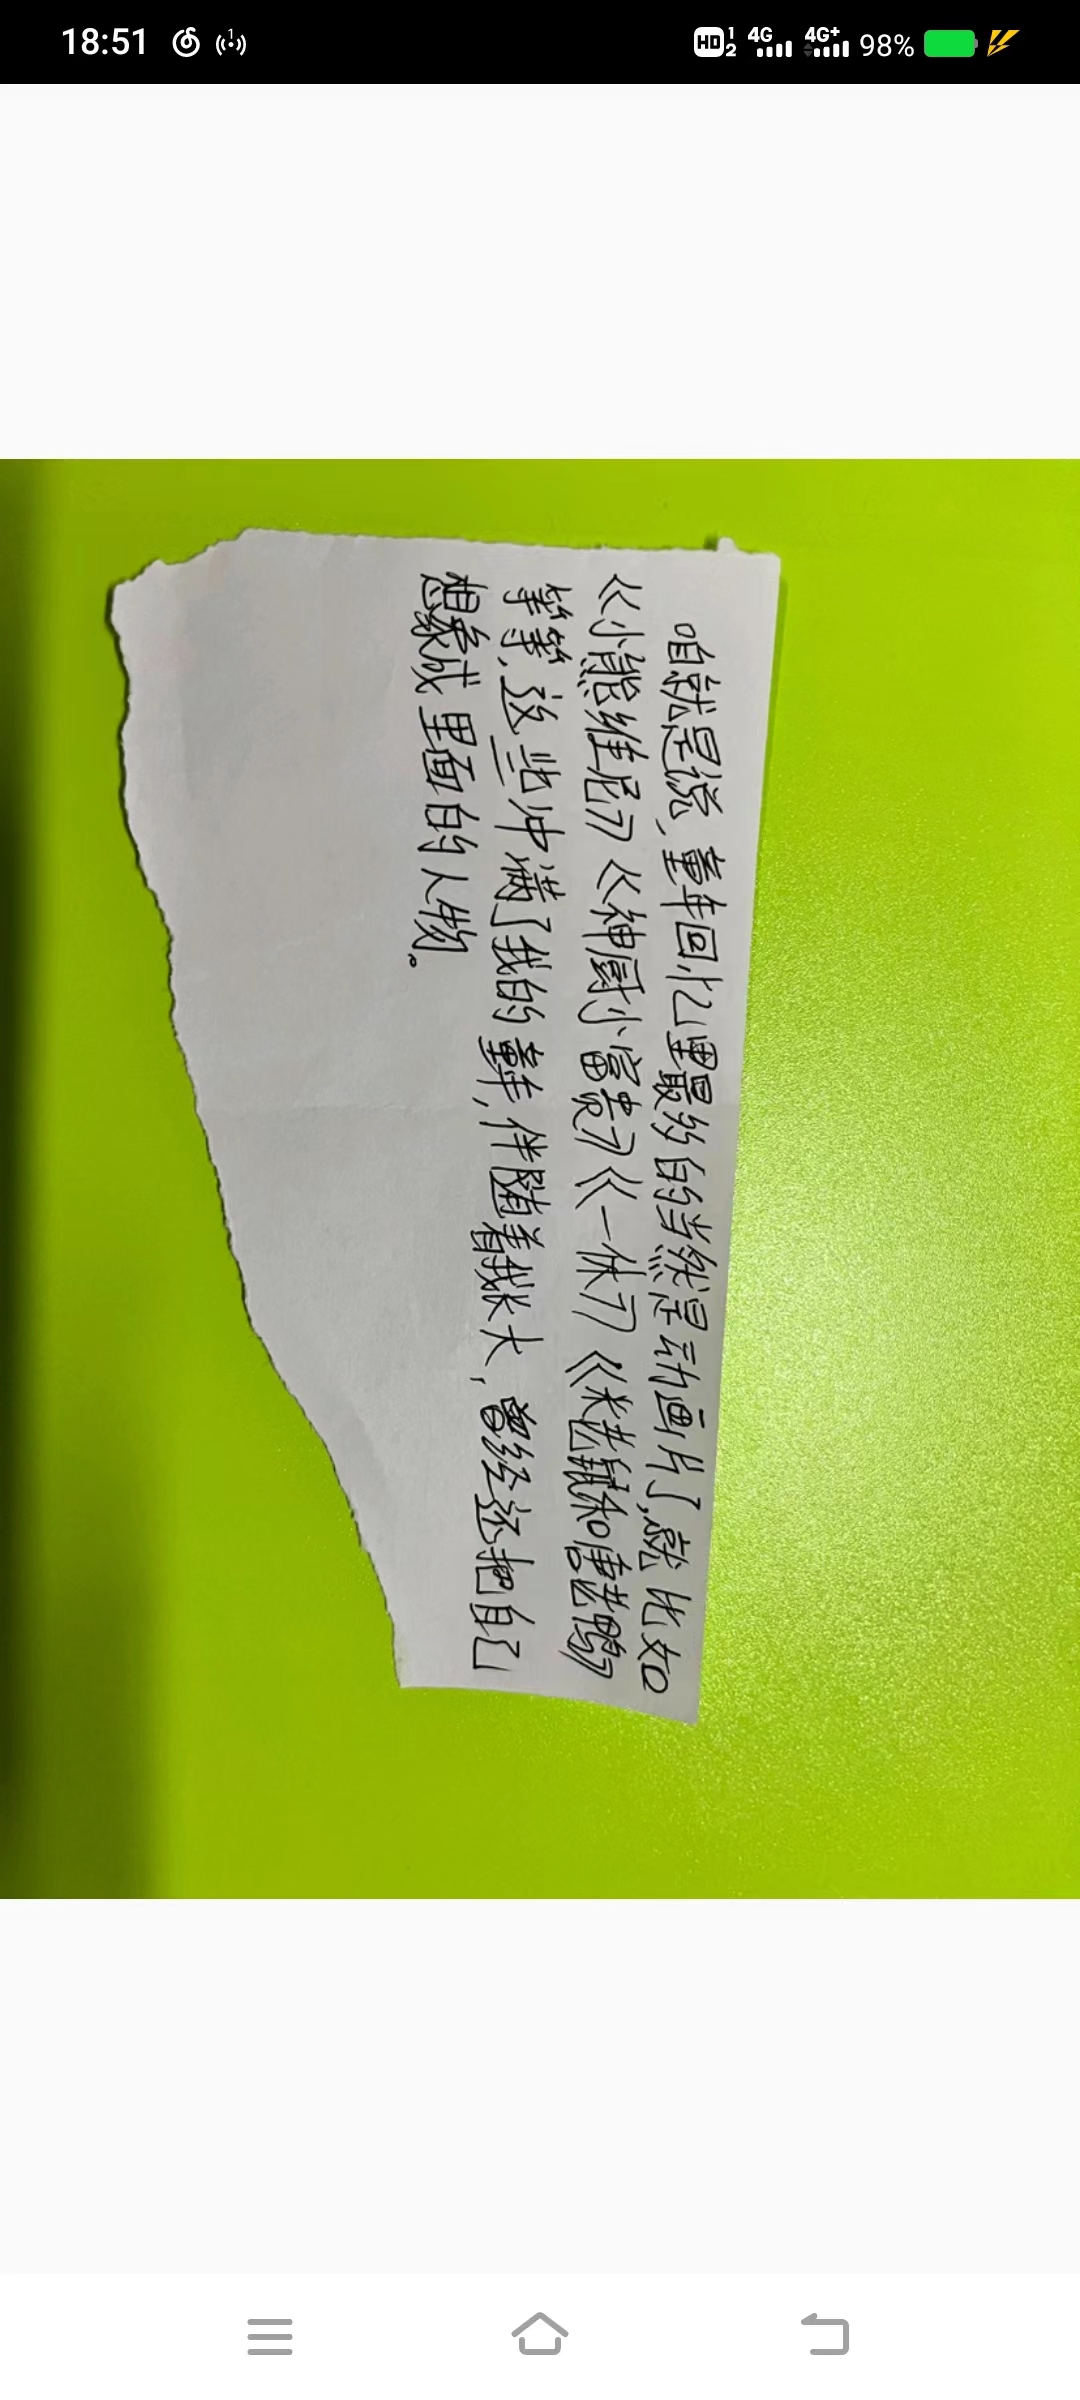 18:51 HD 1 2 4G 4G+ 98%
咱就是说,童年回忆里最多的当然是动画片了,就比如
《小熊维尼》《神厨小富贵》《一休》《米老鼠和唐老鸭》
等等,这些冲满了我的童年,伴随着我长大,曾经还把自己
想象成里面的人物。